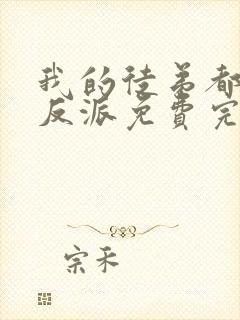 我的徒弟都
反派免费完
宗禾